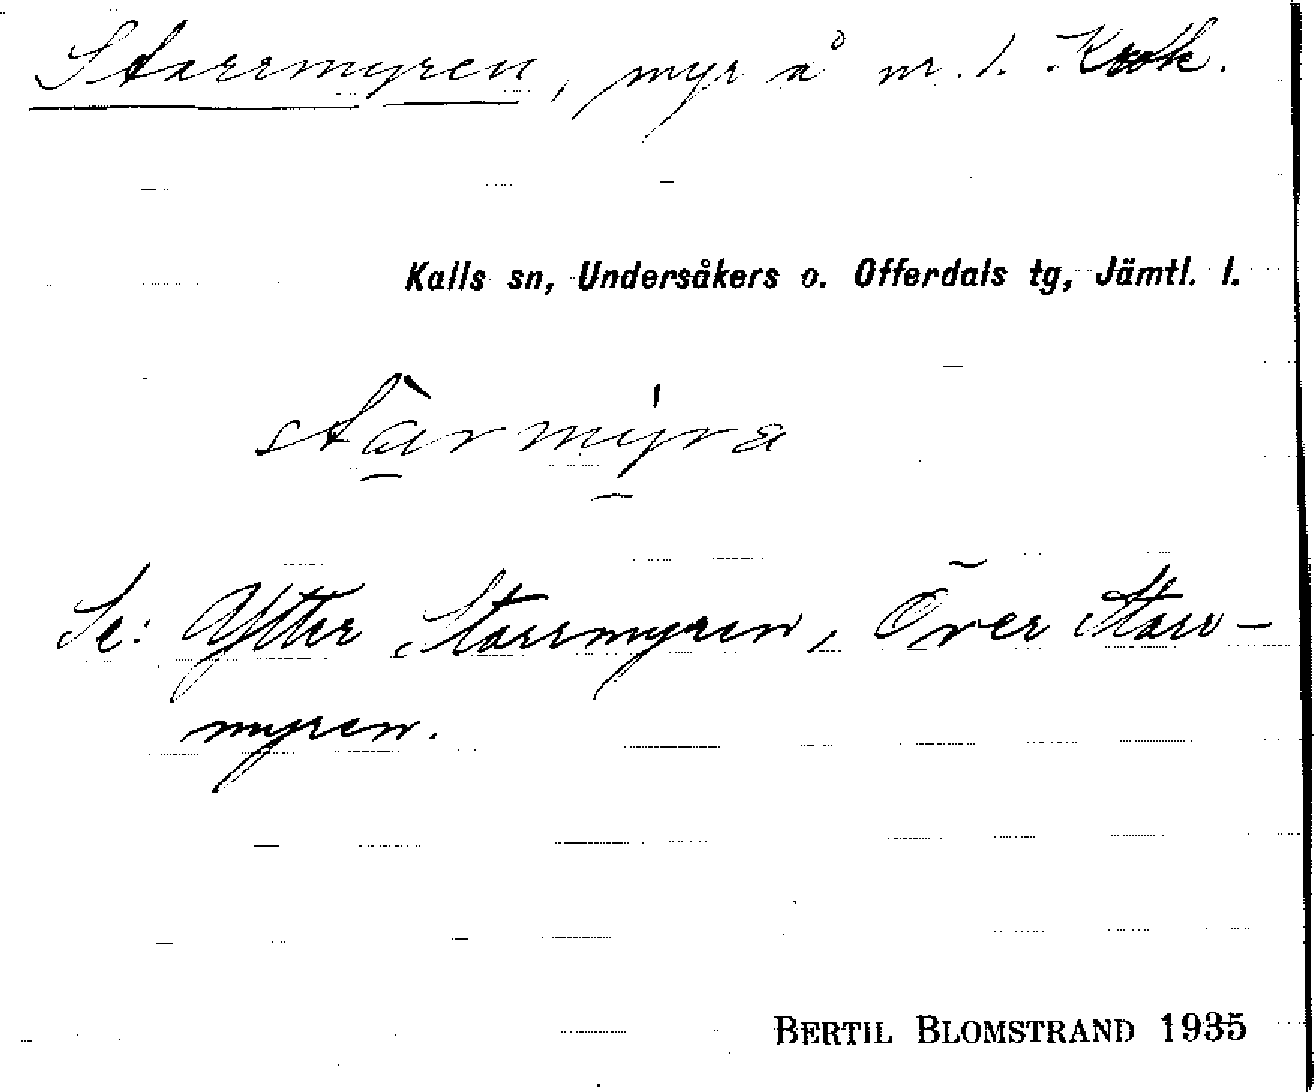 Starrmyren, myr å nr. 1. Krok.
Kalls sn, Undersåkers o. Offerdals tg, Jämtl. l.
stàrmýra
Se: Ytter Starrmyren, Över Starr-
myren.
BERTIL BLOMSTRAND 1935